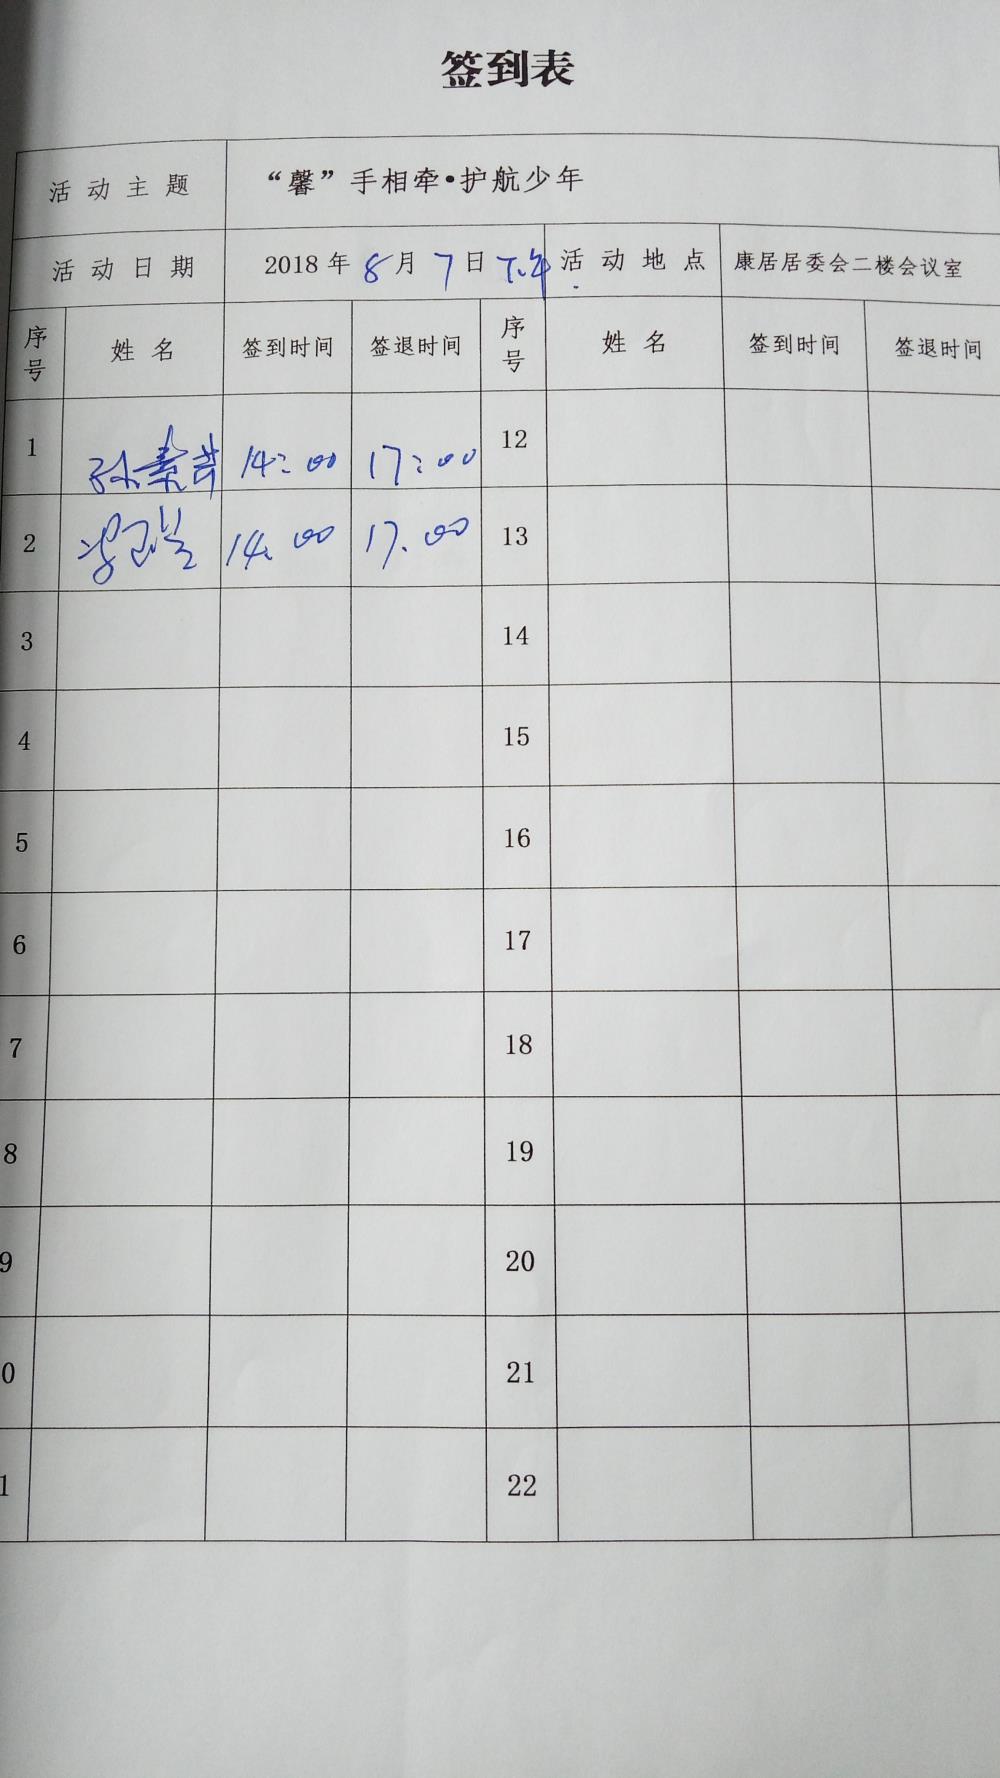 签到表
活动主题 “馨”手相牵•护航少年
活动日期 2018年8月7日下午 活动地点 康居居委会二楼会议室
序号 姓名 签到时间 签退时间 序号 姓名 签到时间 签退时间
1 孙素芳 14:00 17:00 12
2 14:00 17.00 13
3 14
4 15
5 16
6 17
7 18
8 19
9 20
0 21
1 22